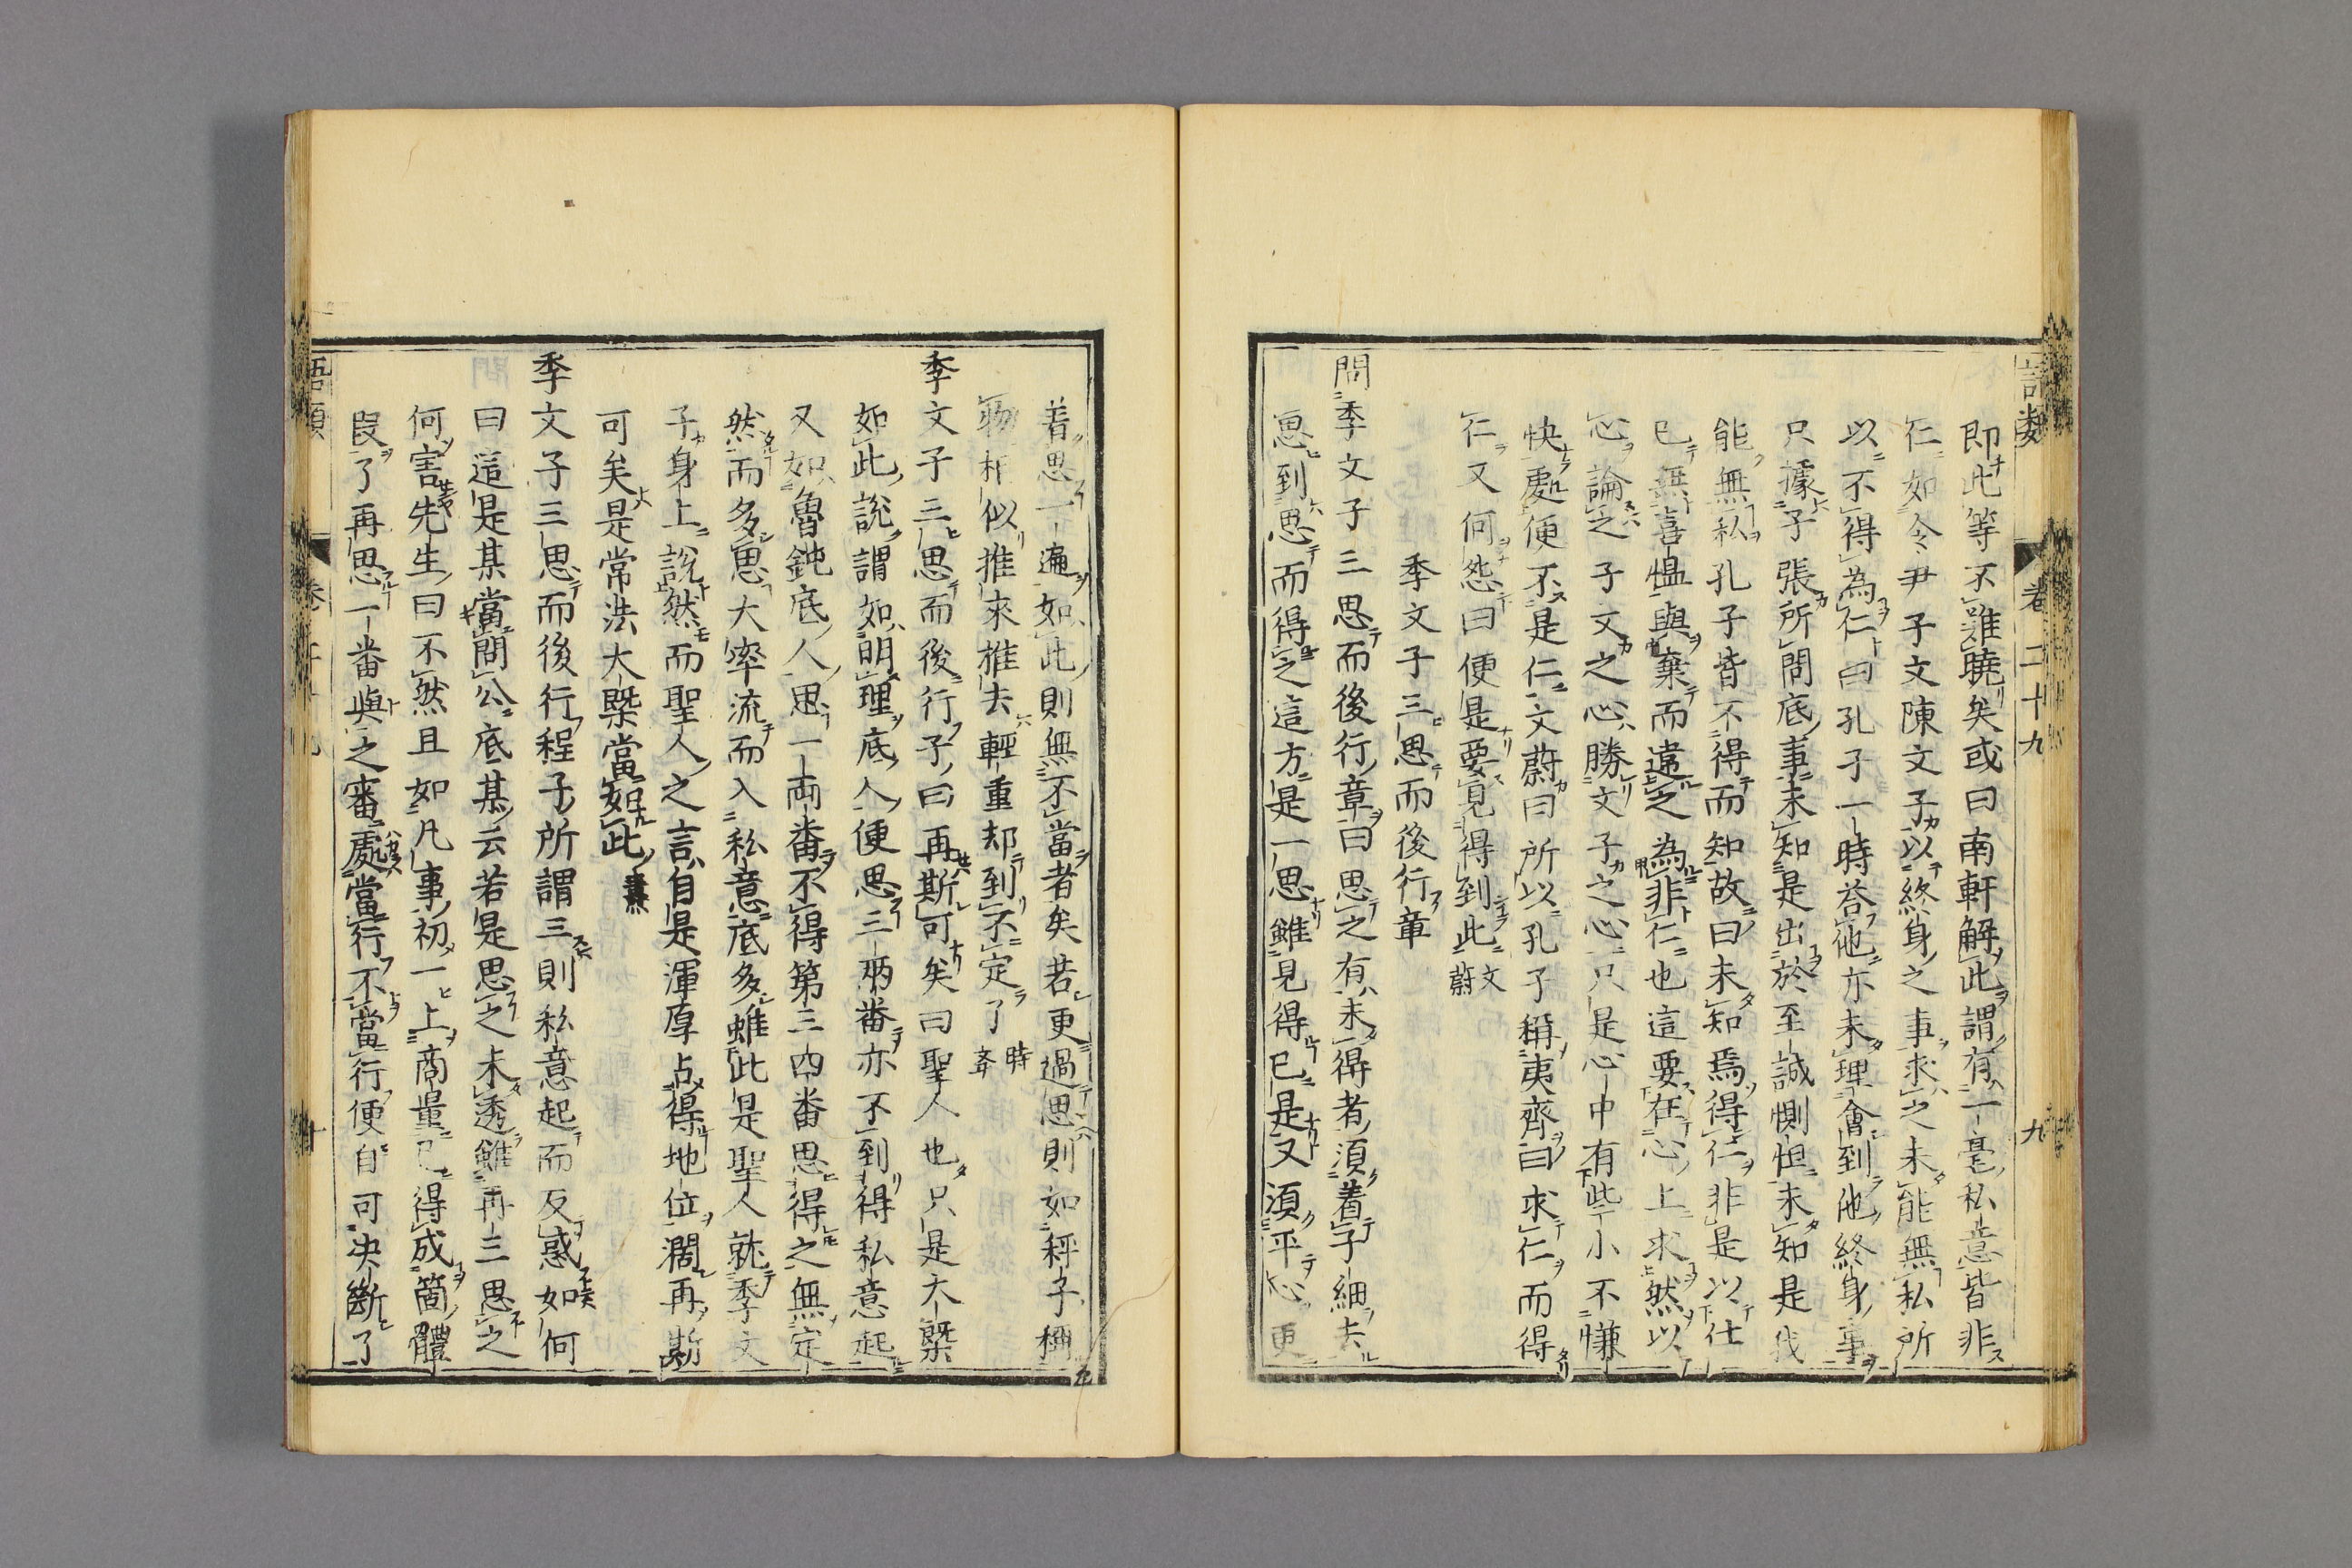 語類 卷二十九 九
即此等不難曉矣或曰南軒解此謂有一毫私意皆非
仁如令尹子文陳文子以終身之事求之未能無私所
以不得為仁曰孔子一時荅他亦未理會到他終身事
只據子張所問底事未知是出於至誠惻怛未知是我
能無私孔子皆不得而知故曰未知焉得仁非是以仕
已無喜慍與棄而違之為非仁也這要在心上求然以
心論之子文之心勝文子之心只是心中有些小不慊
快處便不是仁文蔚曰所以孔子稱夷齊曰求仁而得
仁又何怨曰便是要見得到此文蔚
季文子三思而後行章
問季文子三思而後行章曰思之有未得者須着子細去
思到思而得之這方是一思雖見得已是又須平心更
着思一遍如此則無不當者矣若更過思則如秤子稱
物相似推來推去輕重却到不定了時舉
季文子三思而後行子曰再斯可矣曰聖人也只是大槩
如此說謂如明理底人便思三兩番亦不到得私意起
又如魯鈍底人思一兩番不得第三四番思得之無定
然而多思大率流而入私意底多雖此是聖人就季文
子身上說然而聖人之言自是渾厚占得地位濶再斯
可矣是常法大槩當如此燾
季文子三思而後行程子所謂三則私意起而反惑如何
曰這是某當問公底某云若是思之未透雖再三思之
何害先生曰不然且如凡事初一上商量已得成箇體
叚了再思一番與之審處當行不當行便自可决斷了
語類 卷二十九 十